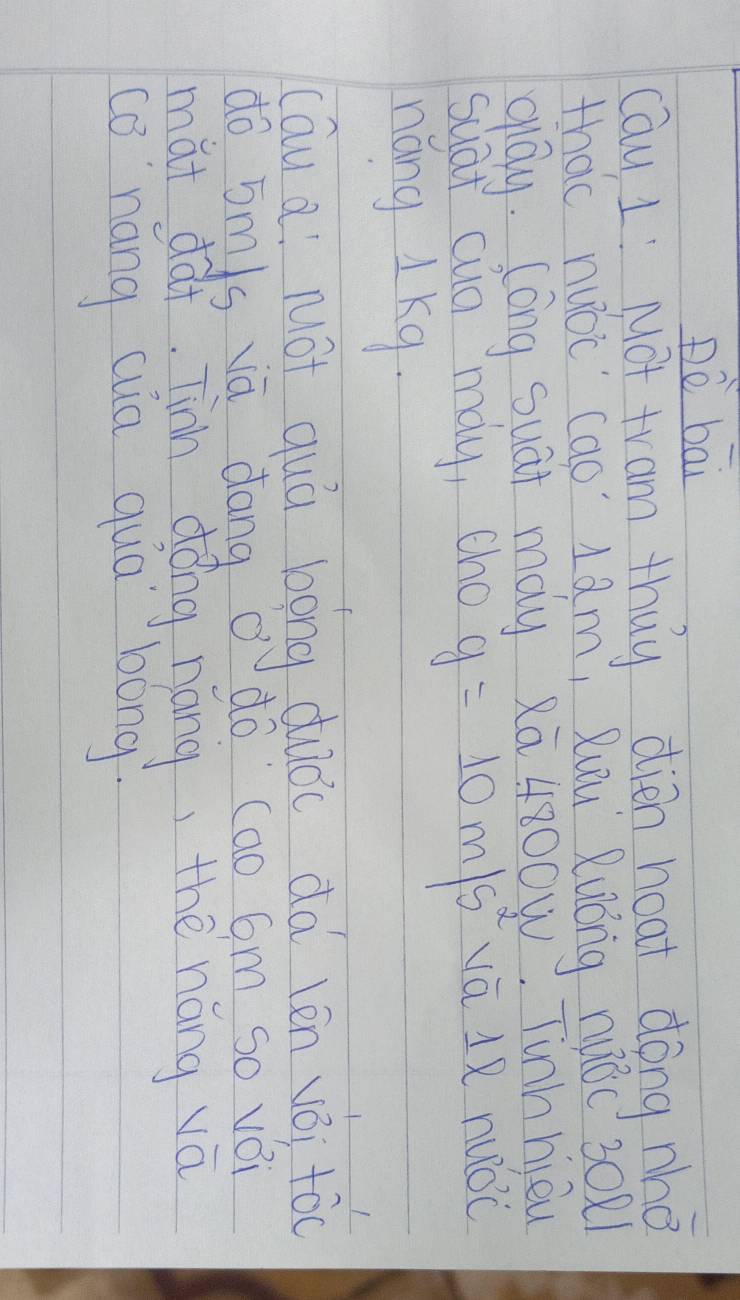 Đề bài
Câu 1: Một trạm thủy điện hoạt động nhờ
thác nước cao 12m, lưu lượng nước 30l/
giây. Công suất máy là 4800W. Tính hiệu
suất của máy, cho g = 10 m/s² và 1l nước
nặng 1kg.
Câu 2: Một quả bóng được đá lên với tốc
độ 5m/s và đang ở độ cao 6m so với
mặt đất. Tính động năng, thế năng và
cơ năng của quả bóng.